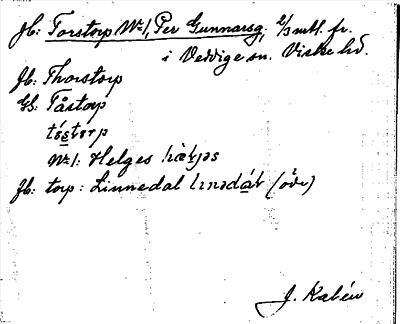 Jb: Torstorp No 1, Per Gunnarsg, 2/3 mtl. fr.
i Veddige sn. Viske hd.
Jb: Thorstorp
GS: Tåstorp
tóstørp
No 1: Helges hæ̀ljəs
Jb: torp: Linnedal lìnədáɫ (öde)
J. Kalén